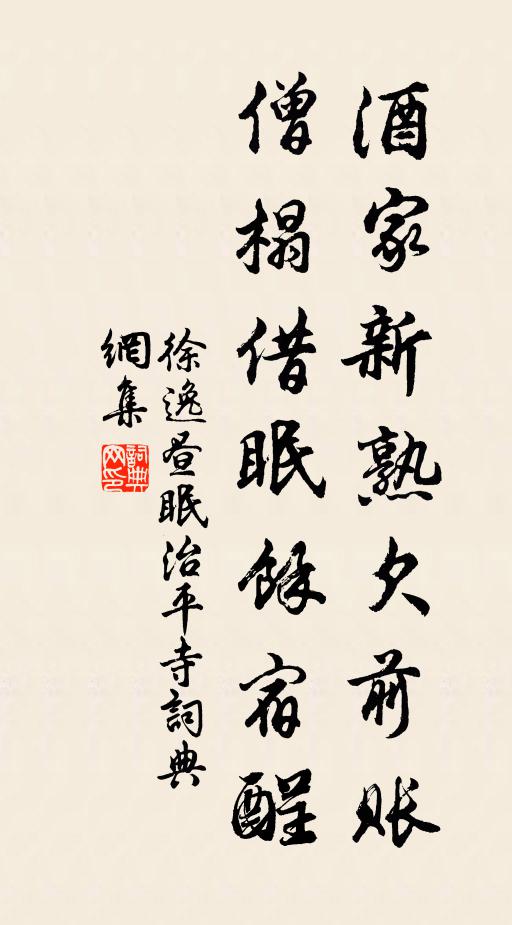 酒家新熟欠前賬
僧榻借眠餘宿酲
徐逸晝眠治平寺詞典
網集
詞典
网印